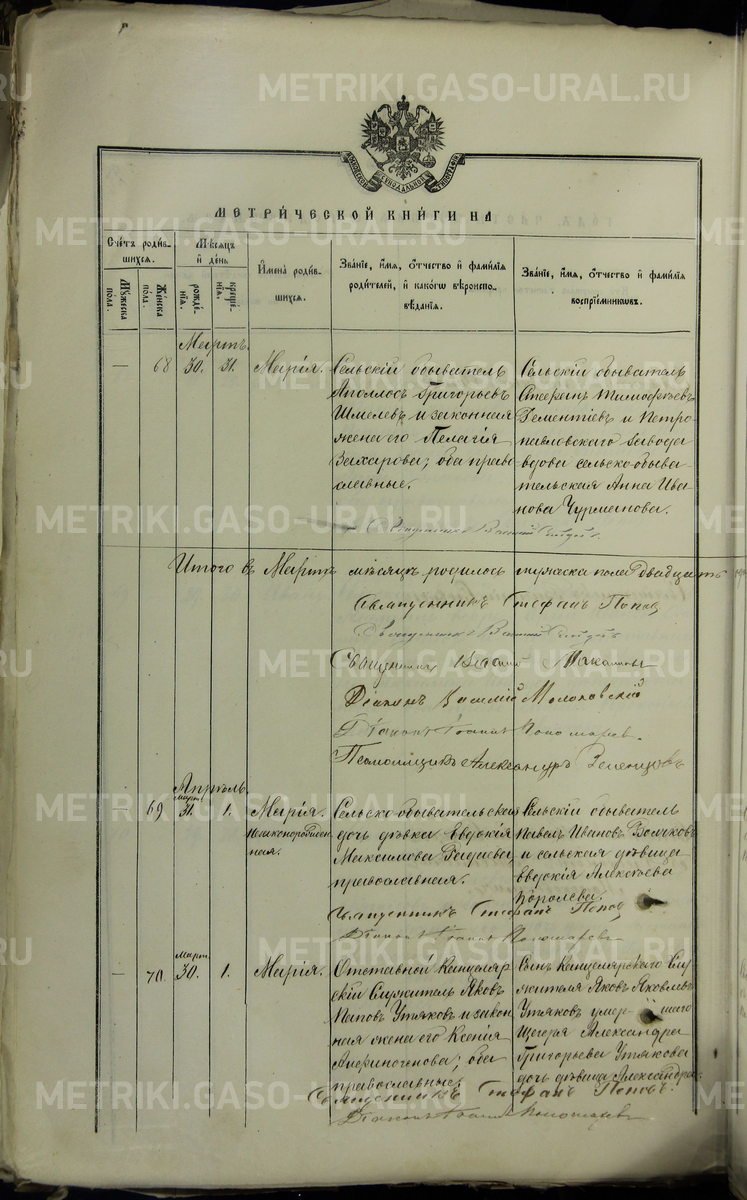 METRIKI.GASO-URAL.RU
МЕТРИ́ЧЕСКОЙ КНИ́ГИ НА
Счéтъ роди́в-
шихся.
Мꙋжеска
пóла.
Жéнска
пóла.
Мѣ́сяцъ
и́ дéнь
рождé-
нїя.
креще́-
нїя.
И҆мена̀ роди́в-
шихся.
Звáнїе, и҆́мя, ѻ҆́тчество и҆ фами́лїя
роди́телей, и҆ какóгѡ вѣроиспо-
вѣ́данїя.
Звáнїе, и҆́мя, ѻ҆́тчество и҆ фами́лїя
воспрїе́мникѡвъ.
Мартъ.
— 68 30. 31. Марія.
Сельскій обыватель
Аполлосъ Григорьевъ
Шмелевъ и законная
жена его Пелагія
Захарова; оба право-
славные.
Сельскій обыватель
Стефанъ Тимофѣевъ
Дементіевъ и Петро-
павловскаго завода
вдова сельско-обыва-
тельская Анна Ива-
нова Чурманова.
Священникъ
Итого въ Мартѣ мѣсяцѣ родилось мужеска пола двадцать
Священникъ Стефанъ Поповъ
Священникъ
Священникъ
Діаконъ Василій
Діаконъ Іоаннъ Пономаревъ.
Псаломщикъ Александръ
Апрѣль.
— 69 Март. 31. 1. Марія.
Незаконнорожден-
ная.
Сельско-обывательская
дочь дѣвка Евдокія
Максимова
православная.
Сельскій обыватель
Павелъ Ивановъ Волчковъ
и сельская дѣвица
Евдокія Алексѣева
Королева.
Священникъ Стефанъ Поповъ
Діаконъ Іоаннъ Пономаревъ
— 70. Март. 30. 1. Марія.
Отставной Канцеляр-
скій Служитель Яковъ
Утяковъ и закон-
ная жена его Ксенія
Афиногенова; оба
православные.
Сынъ Канцелярскаго Слу-
жителя Яковъ Яковлевъ
Утяковъ умершаго
Александра
Григорьева Утякова
дочь дѣвица Александра.
Священникъ Стефанъ Поповъ.
Діаконъ Іоаннъ Пономаревъ